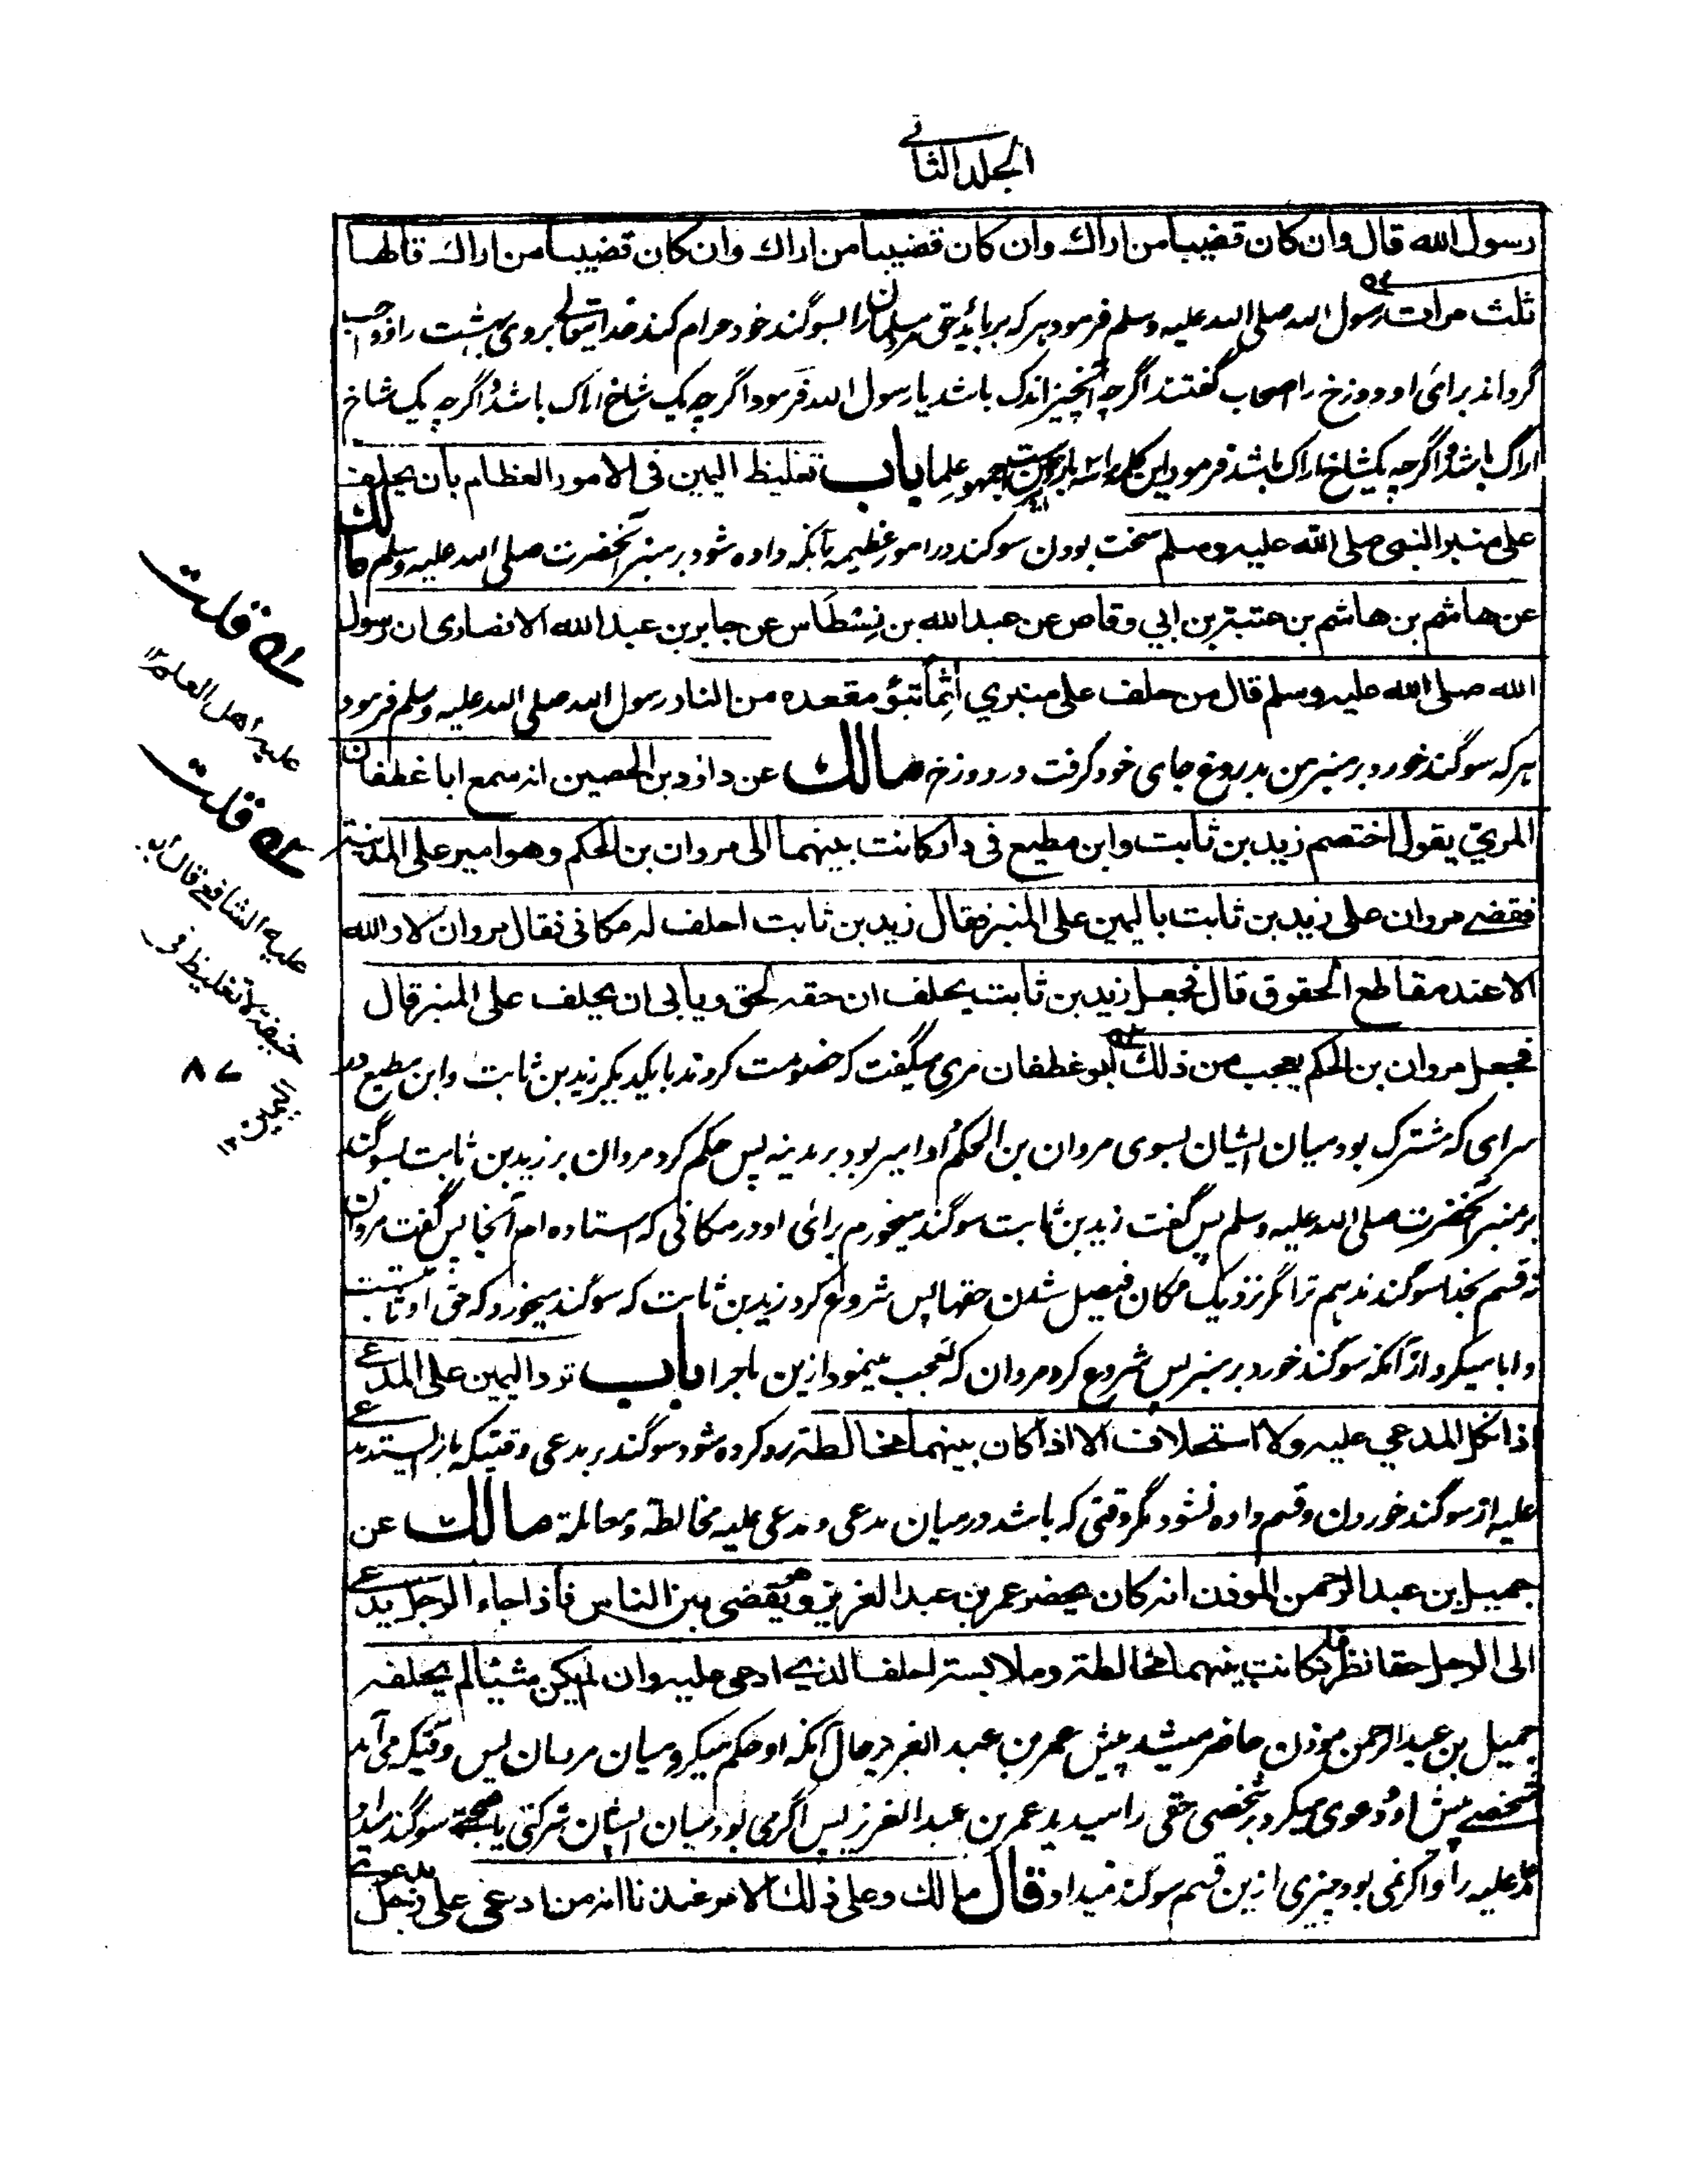 الجلد الثاني
رسول الله قال وان كان قضيبا من اراك وان كان قضيبا من اراك وان كان قضيبا من اراك قالها
ثلث مرات رسول الله صلی الله علیه وسلم فرمود هر که برباید حق مرد مسلمان را بسوگند خود حرام کند خدایتعالی بروی بهشت را و واجب
گرداند برای او دوزخ را اصحاب گفتند اگرچه آنچیز اندک باشد یا رسول الله فرمود اگرچه یک شاخ اراک باشد و اگرچه یک شاخ
اراک باشد و اگرچه یکشاخ اراک باشد فرمود این کلمه را سه بار جمهور علما باب تغليظ اليمين فى الامور العظام بان يحلف
على منبر النبى صلى الله عليه وسلم سخت بودن سوگند در امور عظیمه بآنکه داده شود بر منبر آنحضرت صلی الله علیه وسلم مالك
عن هاشم بن هاشم بن عتبة بن ابي وقاص عن عبد الله بن نِسْطَاس عن جابر بن عبد الله الانصارى ان رسول
الله صلى الله عليه وسلم قال من حلف على منبري اثما تبؤ مقعده من النار رسول الله صلی الله علیه وسلم فرمود
هر که سوگند خورد بر منبر من بدروغ جای خود گرفت در دوزخ مالك عن داؤد بن الحصين انه سمع ابا غطفان
المريّ يقول اختصم زيد بن ثابت وابن مطيع فى دار كانت بينهما الى مروان بن الحكم وهو امير على المدينة
فقضے مروان على زيد بن ثابت باليمين على المنبر فقال زيد بن ثابت احلف له مكانى فقال مروان لا والله
الا عند مقاطع الحقوق قال فجعل زيد بن ثابت يحلف ان حقه لحق ويابى ان يحلف على المنبر قال
فجعل مروان بن الحكم يعجب من ذلك ابو غطفان مری میگفت که خصومت کردند با یکدیگر زید بن ثابت و ابن مطیع در
سرای که مشترک بود میان ایشان بسوی مروان بن الحکم و او امیر بود بر مدینه پس حکم کرد مروان بر زید بن ثابت بسوگند
بر منبر آنحضرت صلی الله علیه وسلم پس گفت زید بن ثابت سوگند میخورم برای او در مکانی که استاده ام آنجا پس گفت مروان
نه قسم بخدا سوگند ندهم ترا مگر نزدیک مکان فیصل شدن حقها پس شروع کرد زید بن ثابت که سوگند میخورد که حق او ثابت است
و ابا میکرد از آنکه سوگند خورد بر منبر پس شروع کرد مروان که تعجب مینمود ازین ماجرا باب ترد اليمين على المدعے
اذا نكل المدعي عليه ولا استحلاف الا اذا كان بينهما مخالطة رد کرده شود سوگند بر مدعی وقتیکه باز ایستد مد
علیه از سوگند خوردن و قسم داده نشود مگر وقتی که باشد درمیان مدعی و مدعی علیه مخالطة و معاملة مالك عن
جميل بن عبد الرحمن الموذن انه كان يحضر عمر بن عبد العزيز وهو يقضى بين الناس فاذا جاء الرجل يدعے
الى الرجل حقا نظر فان كانت بينهما مخالطة وملابسة احلف الذے ادعى عليه وان لم يكن شيئا لم يحلفه
جمیل بن عبد الرحمن موذن حاضر میشد پیش عمر بن عبد العزیز در حال آنکه او حکم میکرد میان مردمان پس وقتیکه می آمد
شخصے پیش او و دعوی میکرد بر شخصی حقی را میدید عمر بن عبد العزیز پس اگر می بود میان ایشان شرکتی یا صحبتے سوگند میداد
مدعی علیه را و اگر نمی بود چیزی ازین قسم سوگند نمیداد قال مالك وعلى ذلك الامر عندنا انه من ادعى على رجل بدعوے
له قلت
عليه اهل العلم ۱۲
له قلت
عليه الشافعے قال ابو
حنيفة لا تغليظ فى
اليمين ۱۲
۸۷